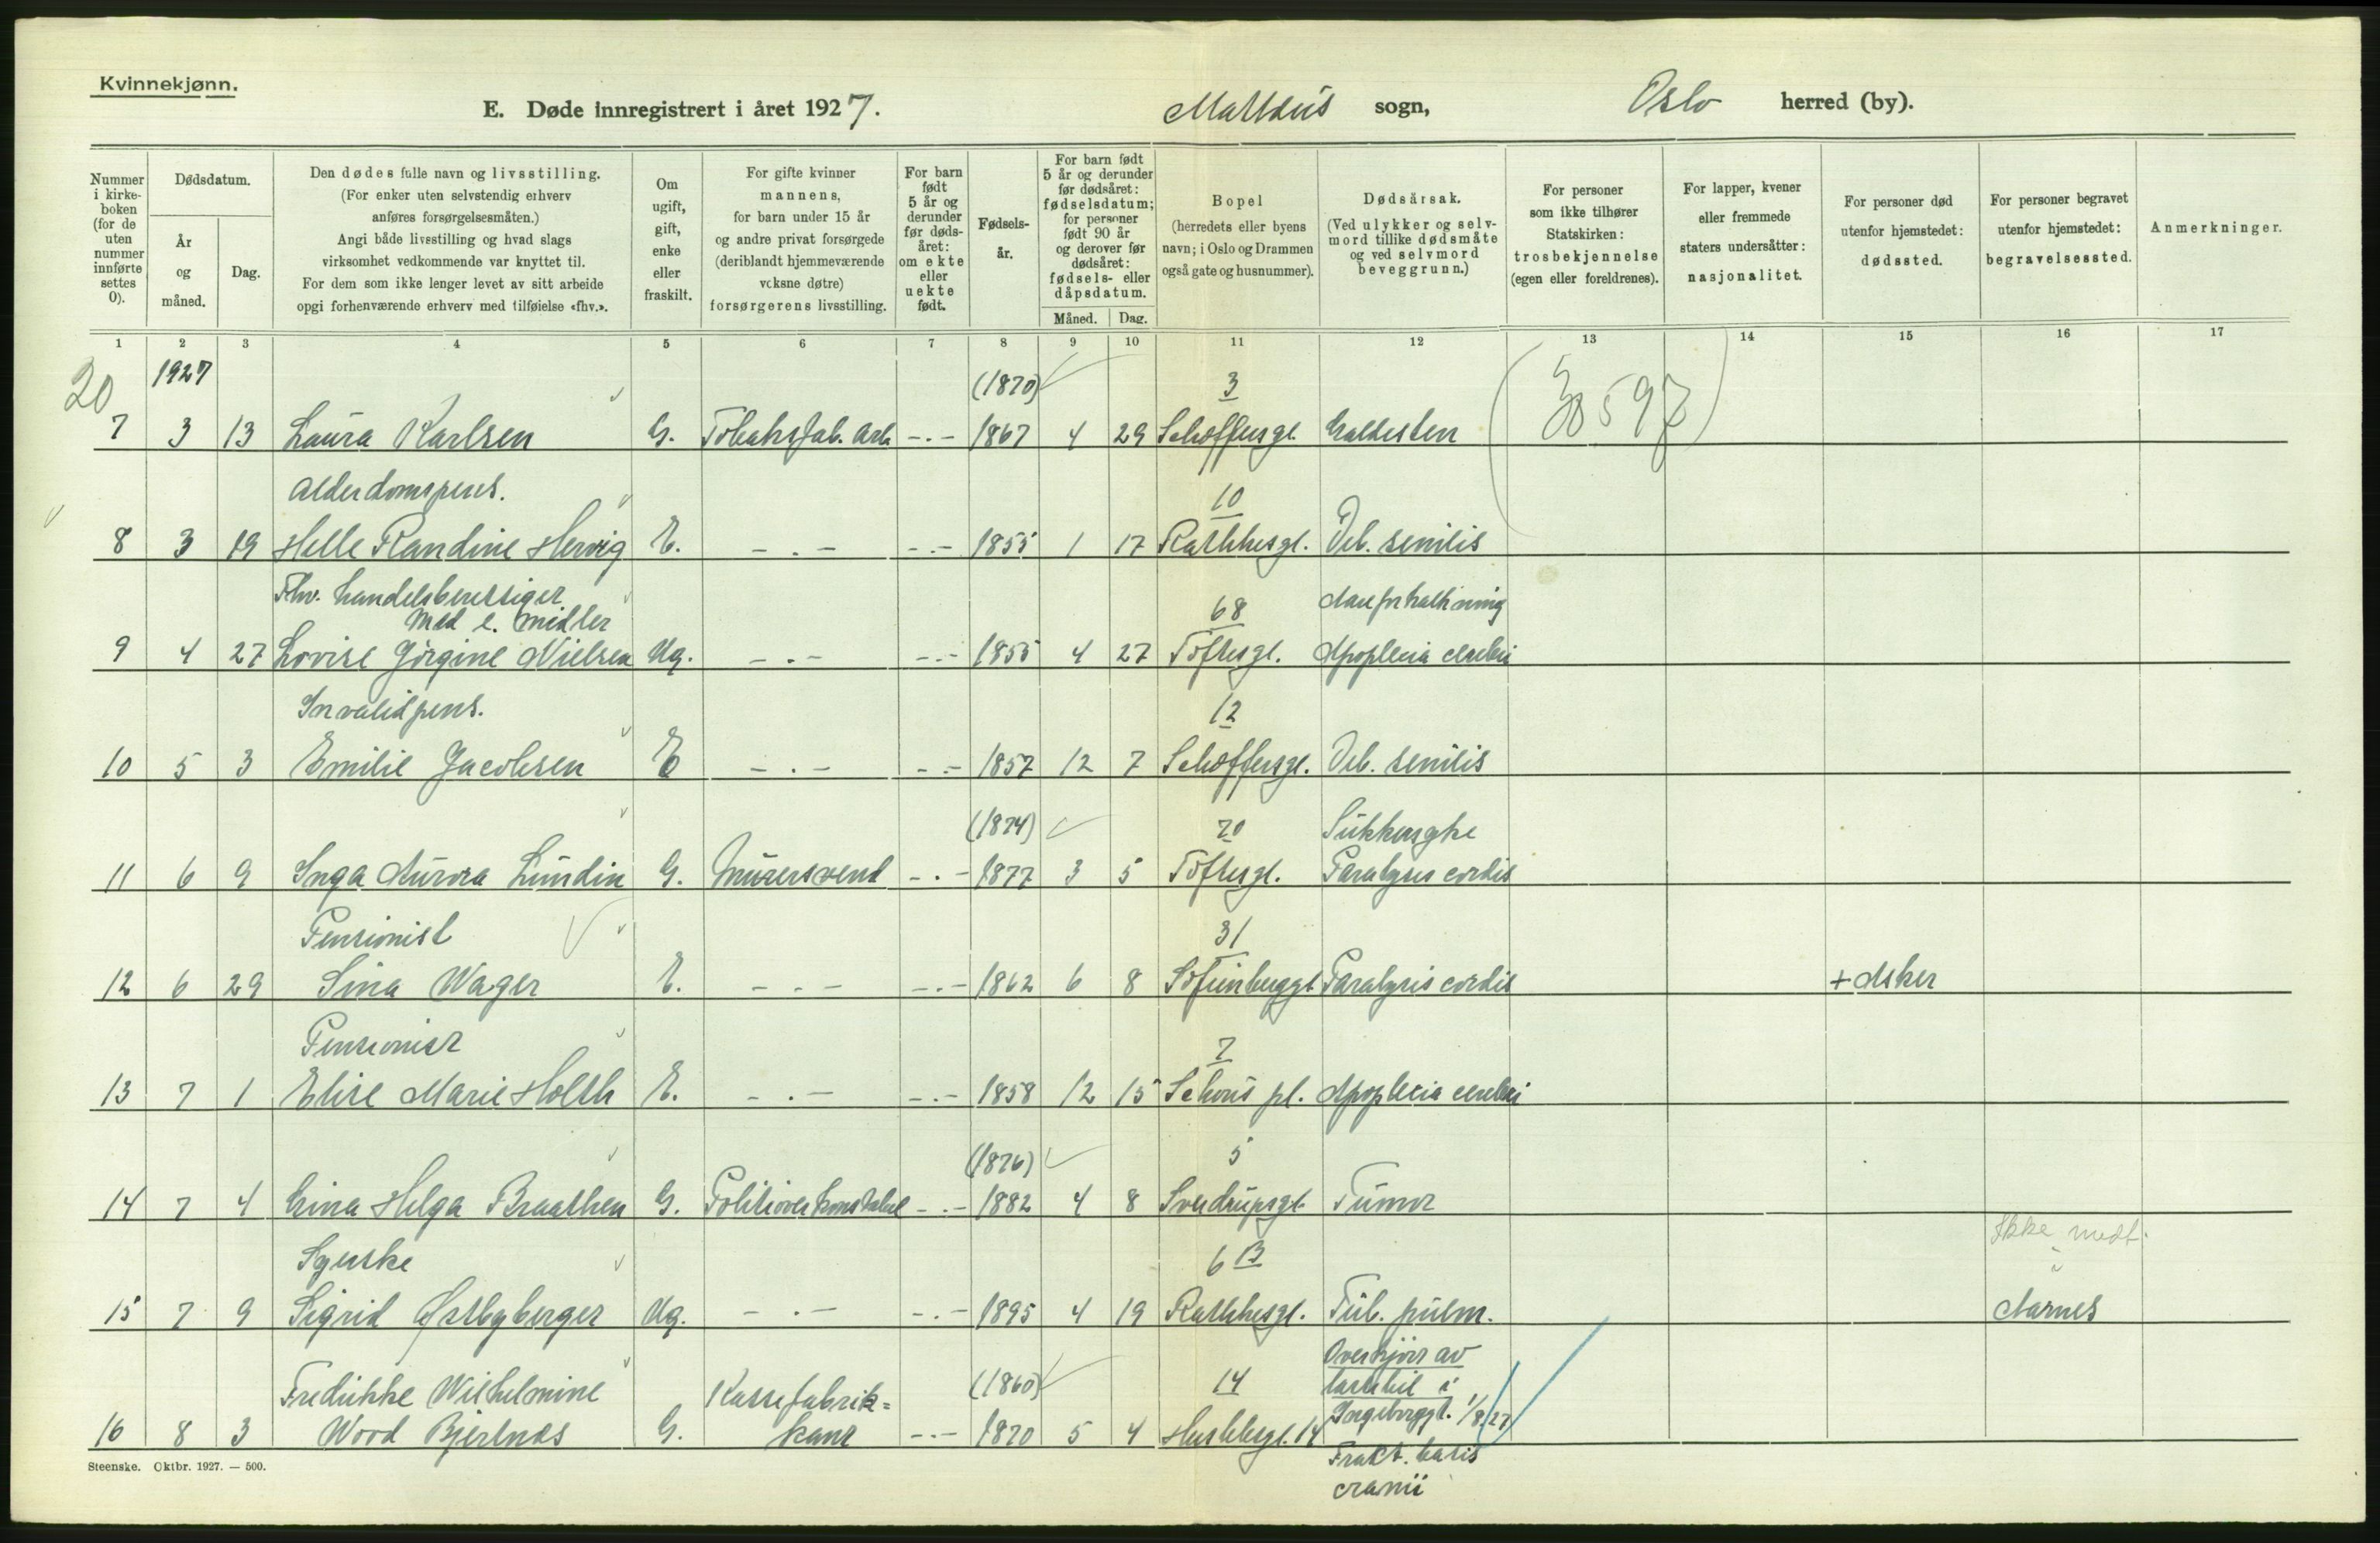 Kvinnekjønn.
E. Døde innregistrert i året 1927. Mattæus sogn, Oslo herred (by).
Nummer i kirkeboken (for de uten nummer innførte settes 0).
Dødsdatum.
År og måned.
Dag.
Den dødes fulle navn og livsstilling.
(For enker uten selvstendig erhverv
anføres forsørgelsesmåten.)
Angi både livsstilling og hvad slags
virksomhet vedkommende var knyttet til.
For dem som ikke lenger levet av sitt arbeide
opgi forhenværende erhverv med tilføielse «fhv.».
Om
ugift,
gift,
enke
eller
fraskilt.
For gifte kvinner
mannens,
for barn under 15 år
og andre privat forsørgede
(deriblandt hjemmeværende
voksne døtre)
forsørgerens livsstilling.
For barn
født
5 år og
derunder
før døds-
året:
om ekte
eller
uekte
født.
Fødsels-
år.
For barn født
5 år og derunder
før dødsåret:
fødselsdatum;
for personer
født 90 år
og derover før
dødsåret:
fødsels- eller
dåpsdatum.
Måned. Dag.
Bopel
(herredets eller byens
navn; i Oslo og Drammen
også gate og husnummer).
Dødsårsak.
(Ved ulykker og selv-
mord tillike dødsmåte
og ved selvmord
beveggrunn.)
For personer
som ikke tilhører
Statskirken:
trosbekjennelse
(egen eller foreldrenes).
For lapper, kvener
eller fremmede
staters undersåtter:
nasjonalitet.
For personer død
utenfor hjemstedet:
dødssted.
For personer begravet
utenfor hjemstedet:
begravelsessted.
Anmerkninger.
1 2 3 4 5 6 7 8 9 10 11 12 13 14 15 16 17
20 1927 (1870) 3
7 3 13 Laura Karlsen G. Tobaksfab. arb -.- 1867 4 29 Schoffersgt. Galdesten
Alderdomspens. 10
8 3 19 Helle Randine Hervig E. -.- -.- 1855 1 17 Rathkesgt. Deb. senilis
Fhv. handelsbetjening
Med e. midler 68 Aareforkalkning
9 4 27 Lovise Jørgine Nielsen Ug. -.- -.- 1855 4 27 Toftesgt. Apoplexia cerebri
Invalidpens. 12
10 5 3 Emilie Jacobsen E -.- -.- 1857 12 7 Schoffersgt. Deb. senilis
(1874) 70 Sukkersyke
11 6 9 Inga Aurora Lundin G. Murersvend -.- 1877 3 5 Toftesgt. Paralysis cordis
Pensionist 31
12 6 29 Sina Wager E. -.- -.- 1862 6 8 Sofienberggt Paralysis cordis + Asker
Pensionist 7
13 7 1 Elise Marie Holth E. -.- -.- 1858 12 15 Schous pl. Apoplexia cerebri
(1876) 5
14 7 4 Gina Helga Braathen G. Politioverkonstabel -.- 1882 4 8 Sverdrupsgt. Tumor
Syerske 6 B Ikke medt.
15 7 9 Sigrid Østbyberger Ug. -.- -.- 1895 4 19 Rathkesgt. Tub. pulm. Aarnes
Fredrikke Wilhelmine Kassefabrik= (1860) 14 Overkjørt av
lastebil i
Ingeborggt. 1/8 27
16 8 3 Wood Bjerknes G. kant -.- 1870 5 4 Huslebsgt. 14
Frakt. basis
cranii
Steenske. Oktbr. 1927. — 500.